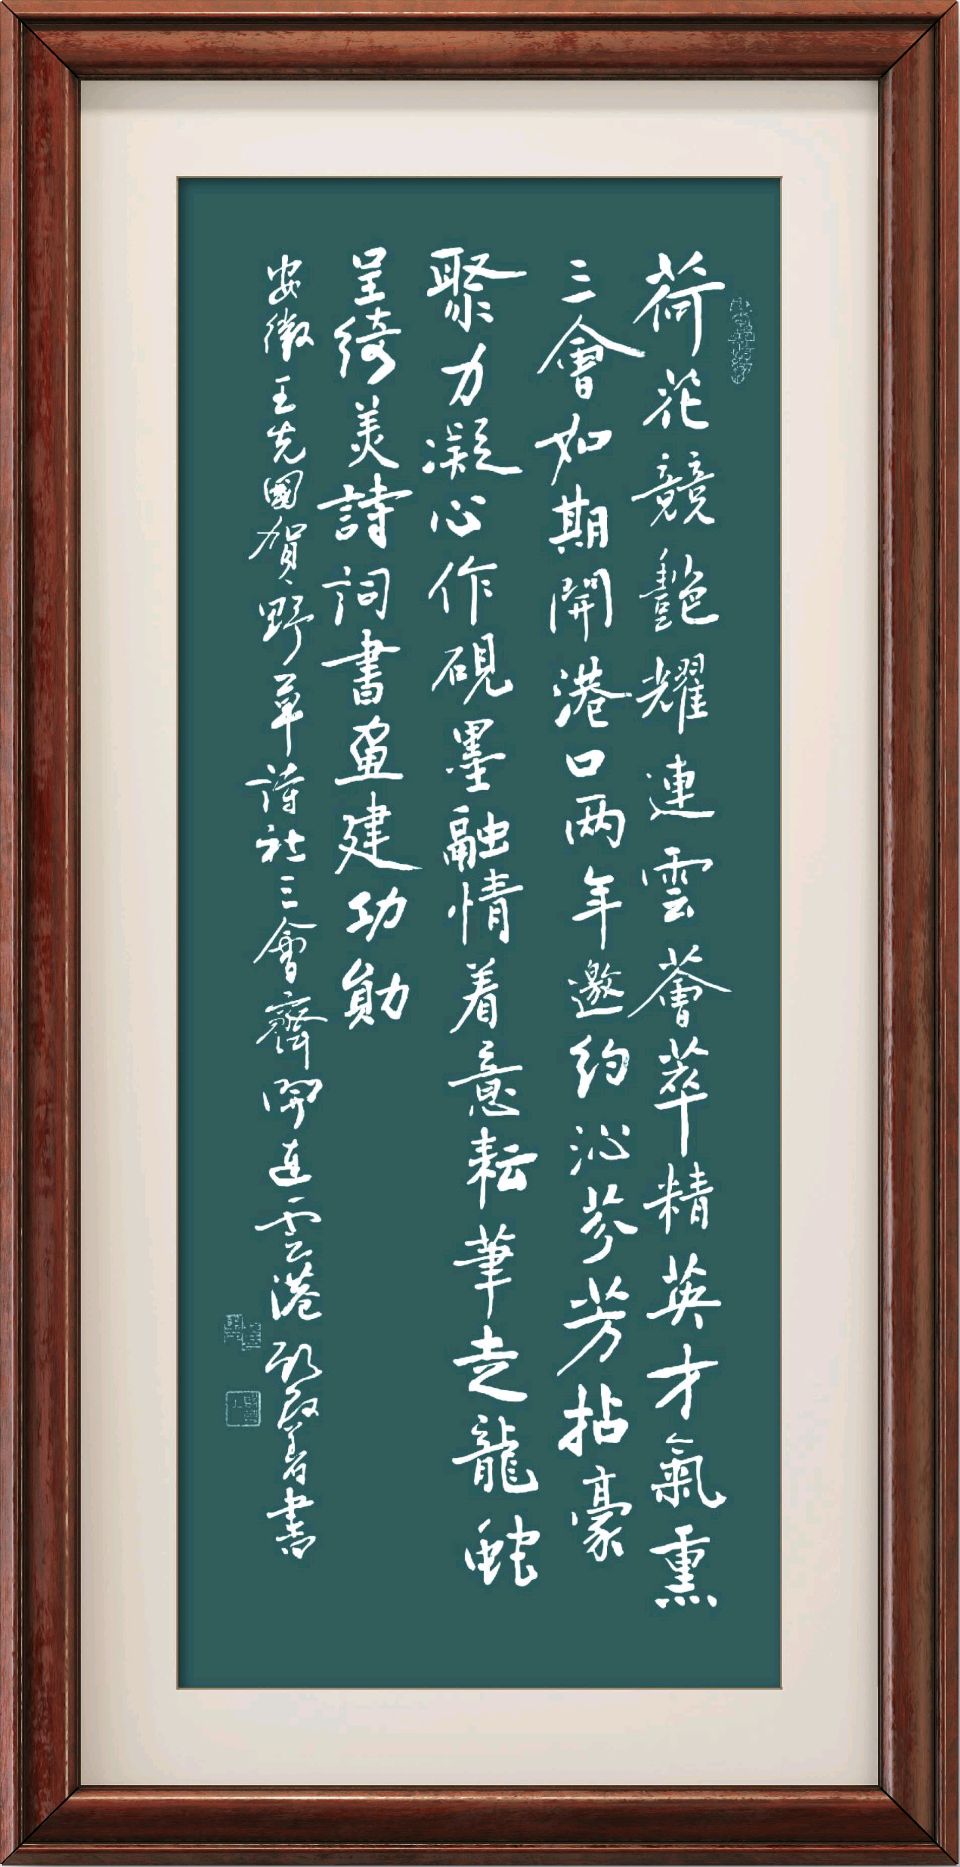 荷花競艷耀連雲薈萃精英才氣熏
三會如期開港口两年邀約沁芬芳拈豪
聚力凝心作硯墨融情着意耘筆走龍蛇
呈綺美詩詞書畫建功勛
安徽王先國賀野草詩社三會齊開連雲港 啟善書